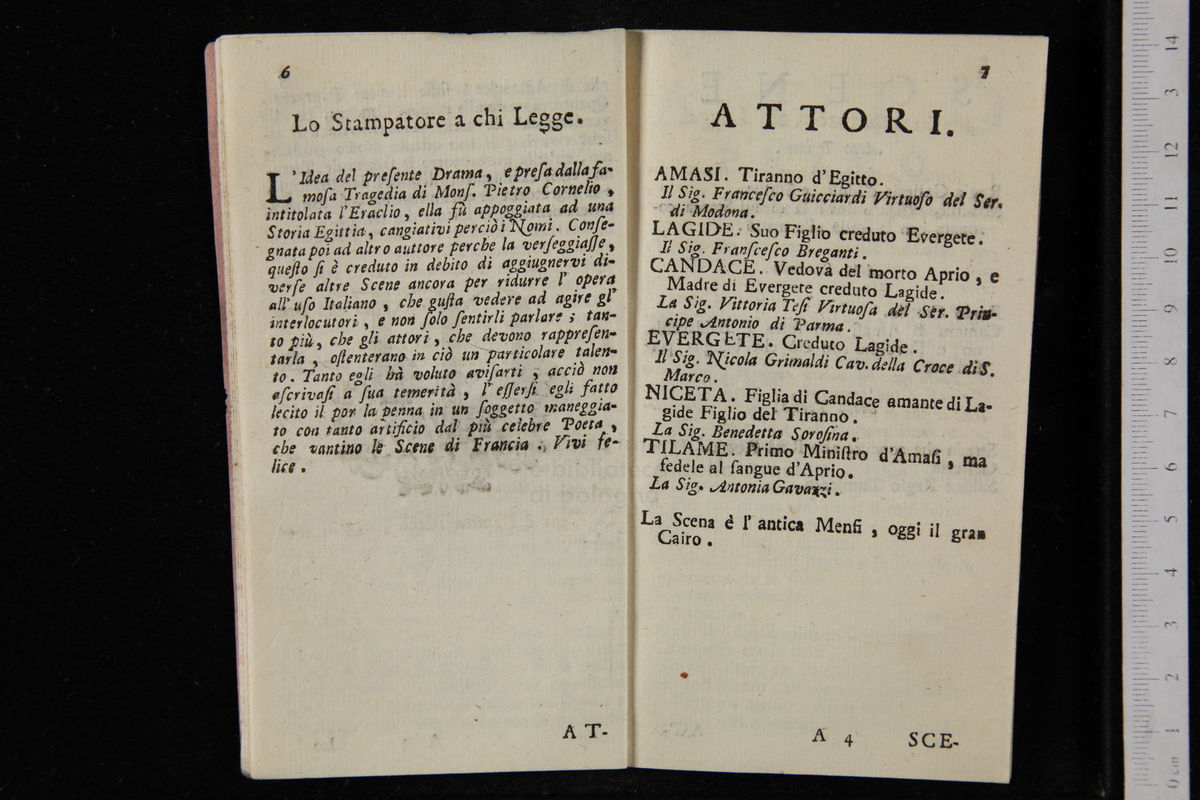 6
Lo Stampatore a chi Legge.
L'Idea del preſente Drama, e preſa dalla fa-
moſa Tragedia di Monſ. Pietro Cornelio,
intitolata l'Eraclio, ella fù appoggiata ad una
Storia Egittia, cangiativi perciò i Nomi. Conſe-
gnata poi ad altro auttore perche la verſeggiaſſe,
queſto ſi è creduto in debito di aggiugnervi di-
verſe altre Scene ancora per ridurre l' opera
all' uſo Italiano, che guſta vedere ad agire gl'
interlocutori, e non ſolo ſentirli parlare; tan-
to più, che gli attori, che devono rappreſen-
tarla, oſtenterano in ciò un particolare talen-
to. Tanto egli hà voluto aviſarti, acciò non
aſcrivaſi a ſua temerità, l' eſſerſi egli fatto
lecito il por la penna in un ſoggetto maneggia-
to con tanto artificio dal più celebre Poeta,
che vantino le Scene di Francia. Vivi fe-
lice.
AT-
7
ATTORI.
AMASI. Tiranno d'Egitto.
Il Sig. Franceſco Guicciardi Virtuoſo del Ser.
di Modona.
LAGIDE. Suo Figlio creduto Evergete.
Il Sig. Franſceſco Breganti.
CANDACE. Vedova del morto Aprio, e
Madre di Evergete creduto Lagide.
La Sig. Vittoria Teſi Virtuoſa del Ser. Prin-
cipe Antonio di Parma.
EVERGETE. Creduto Lagide.
Il Sig. Nicola Grimaldi Cav. della Croce di S.
Marco.
NICETA. Figlia di Candace amante di La-
gide Figlio del Tiranno.
La Sig. Benedetta Soroſina.
TILAME. Primo Miniſtro d'Amaſi, ma
fedele al ſangue d'Aprio.
La Sig. Antonia Gavazzi.
La Scena è l' antica Menfi, oggi il gran
Cairo.
A 4 SCE-
14
3
12
11
10
9
8
7
6
5
4
3
2
1
0 cm